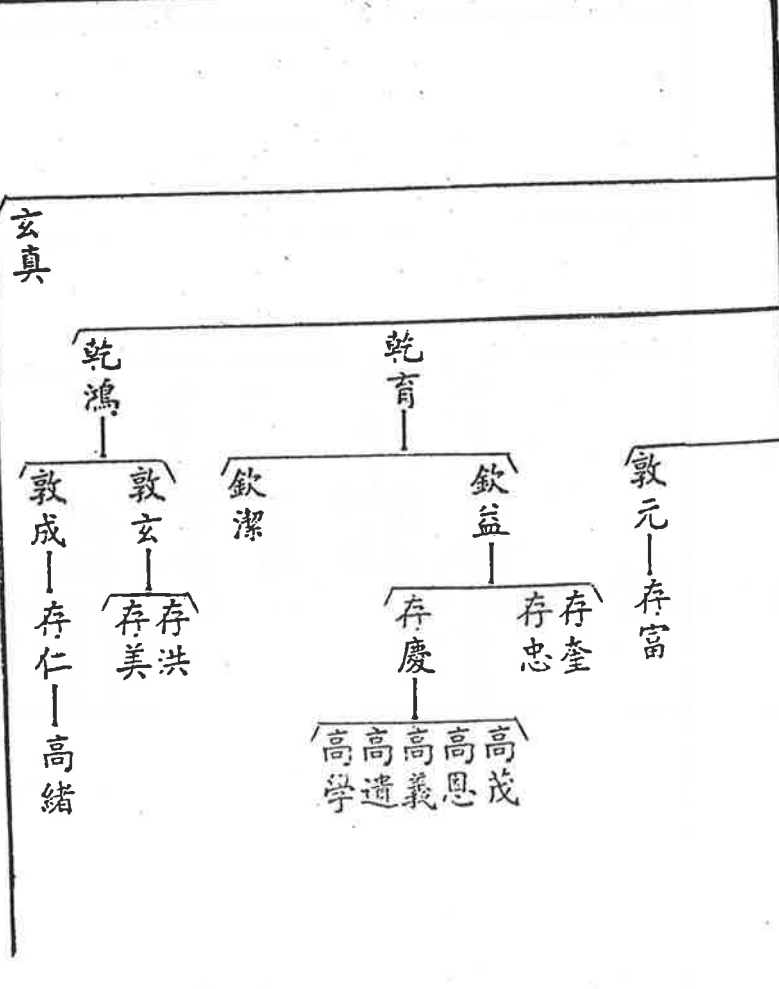 敦元
存富
乾育
欽益
存奎
存忠
存慶
高茂
高恩
高義
高遺
高学
欽潔
乾鴻
敦玄
存洪
存美
敦成
存仁
高緒
玄真